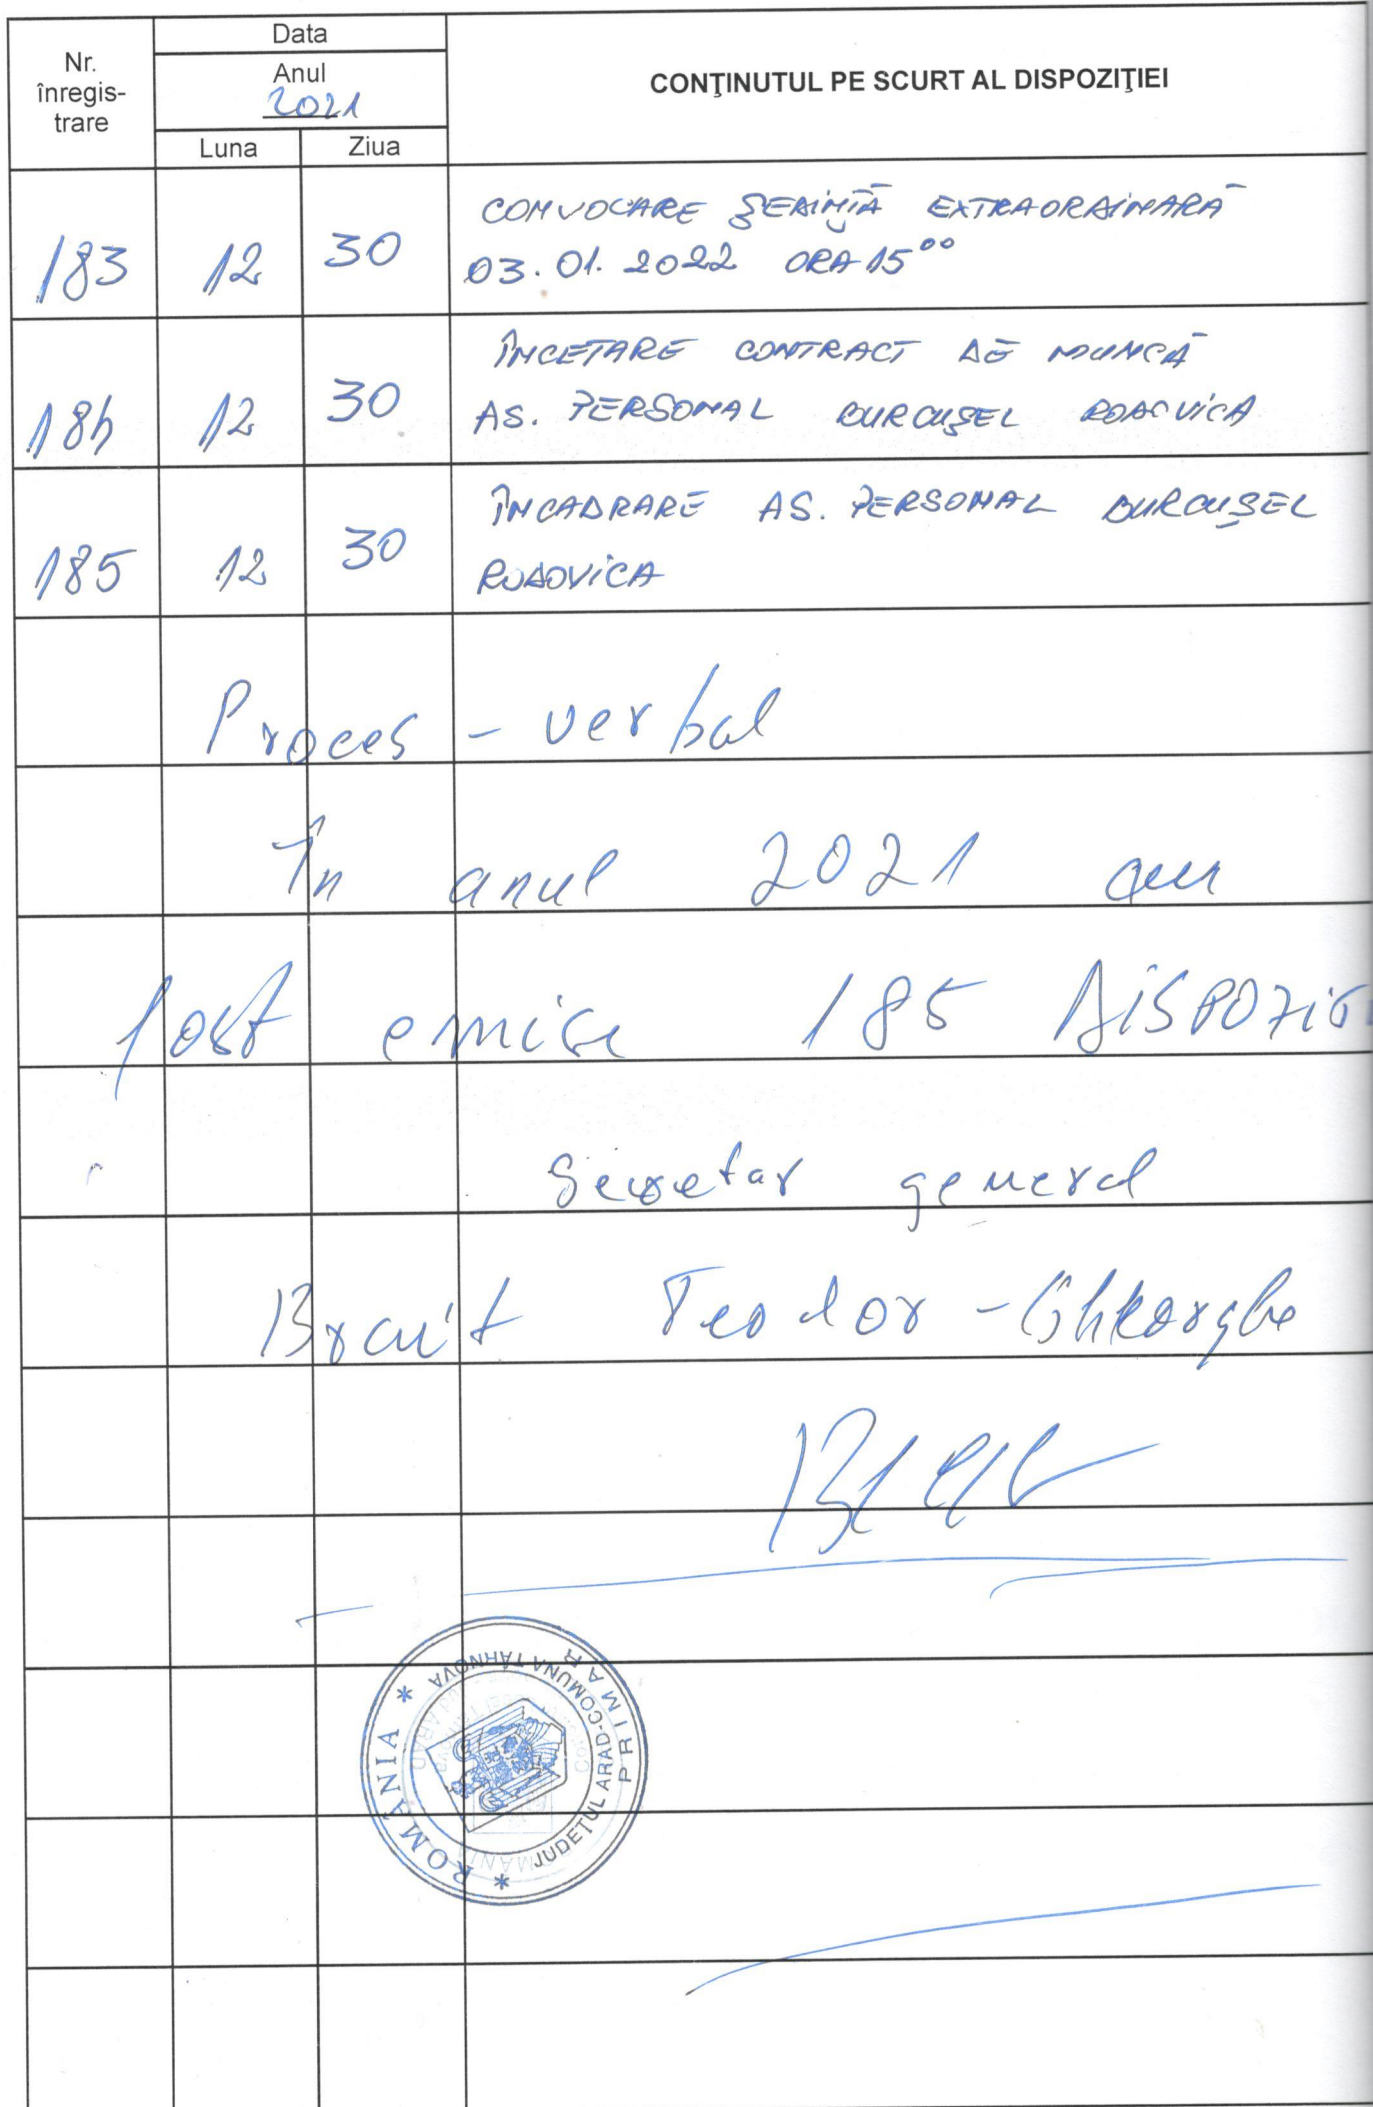 Nr. înregis- trare
Data
Anul
2021
Luna Ziua
CONŢINUTUL PE SCURT AL DISPOZIŢIEI
183 12 30 CONVOCARE ŞEDINŢĂ EXTRAORDINARĂ
03.01.2022 ORA 15⁰⁰
184 12 30 ÎNCETARE CONTRACT DE MUNCĂ
AS. PERSONAL BURCUŞEL RODOVICA
185 12 30 ÎNCADRARE AS. PERSONAL BURCUŞEL
RODOVICA
Proces - verbal
În anul 2021 au
fost emise 185 DISPOZIŢI
Secretar general
Teodor - Gheorghe
ROMÂNIA * JUDEŢUL ARAD-COMUNA TÂRNOVA *
PRIMAR